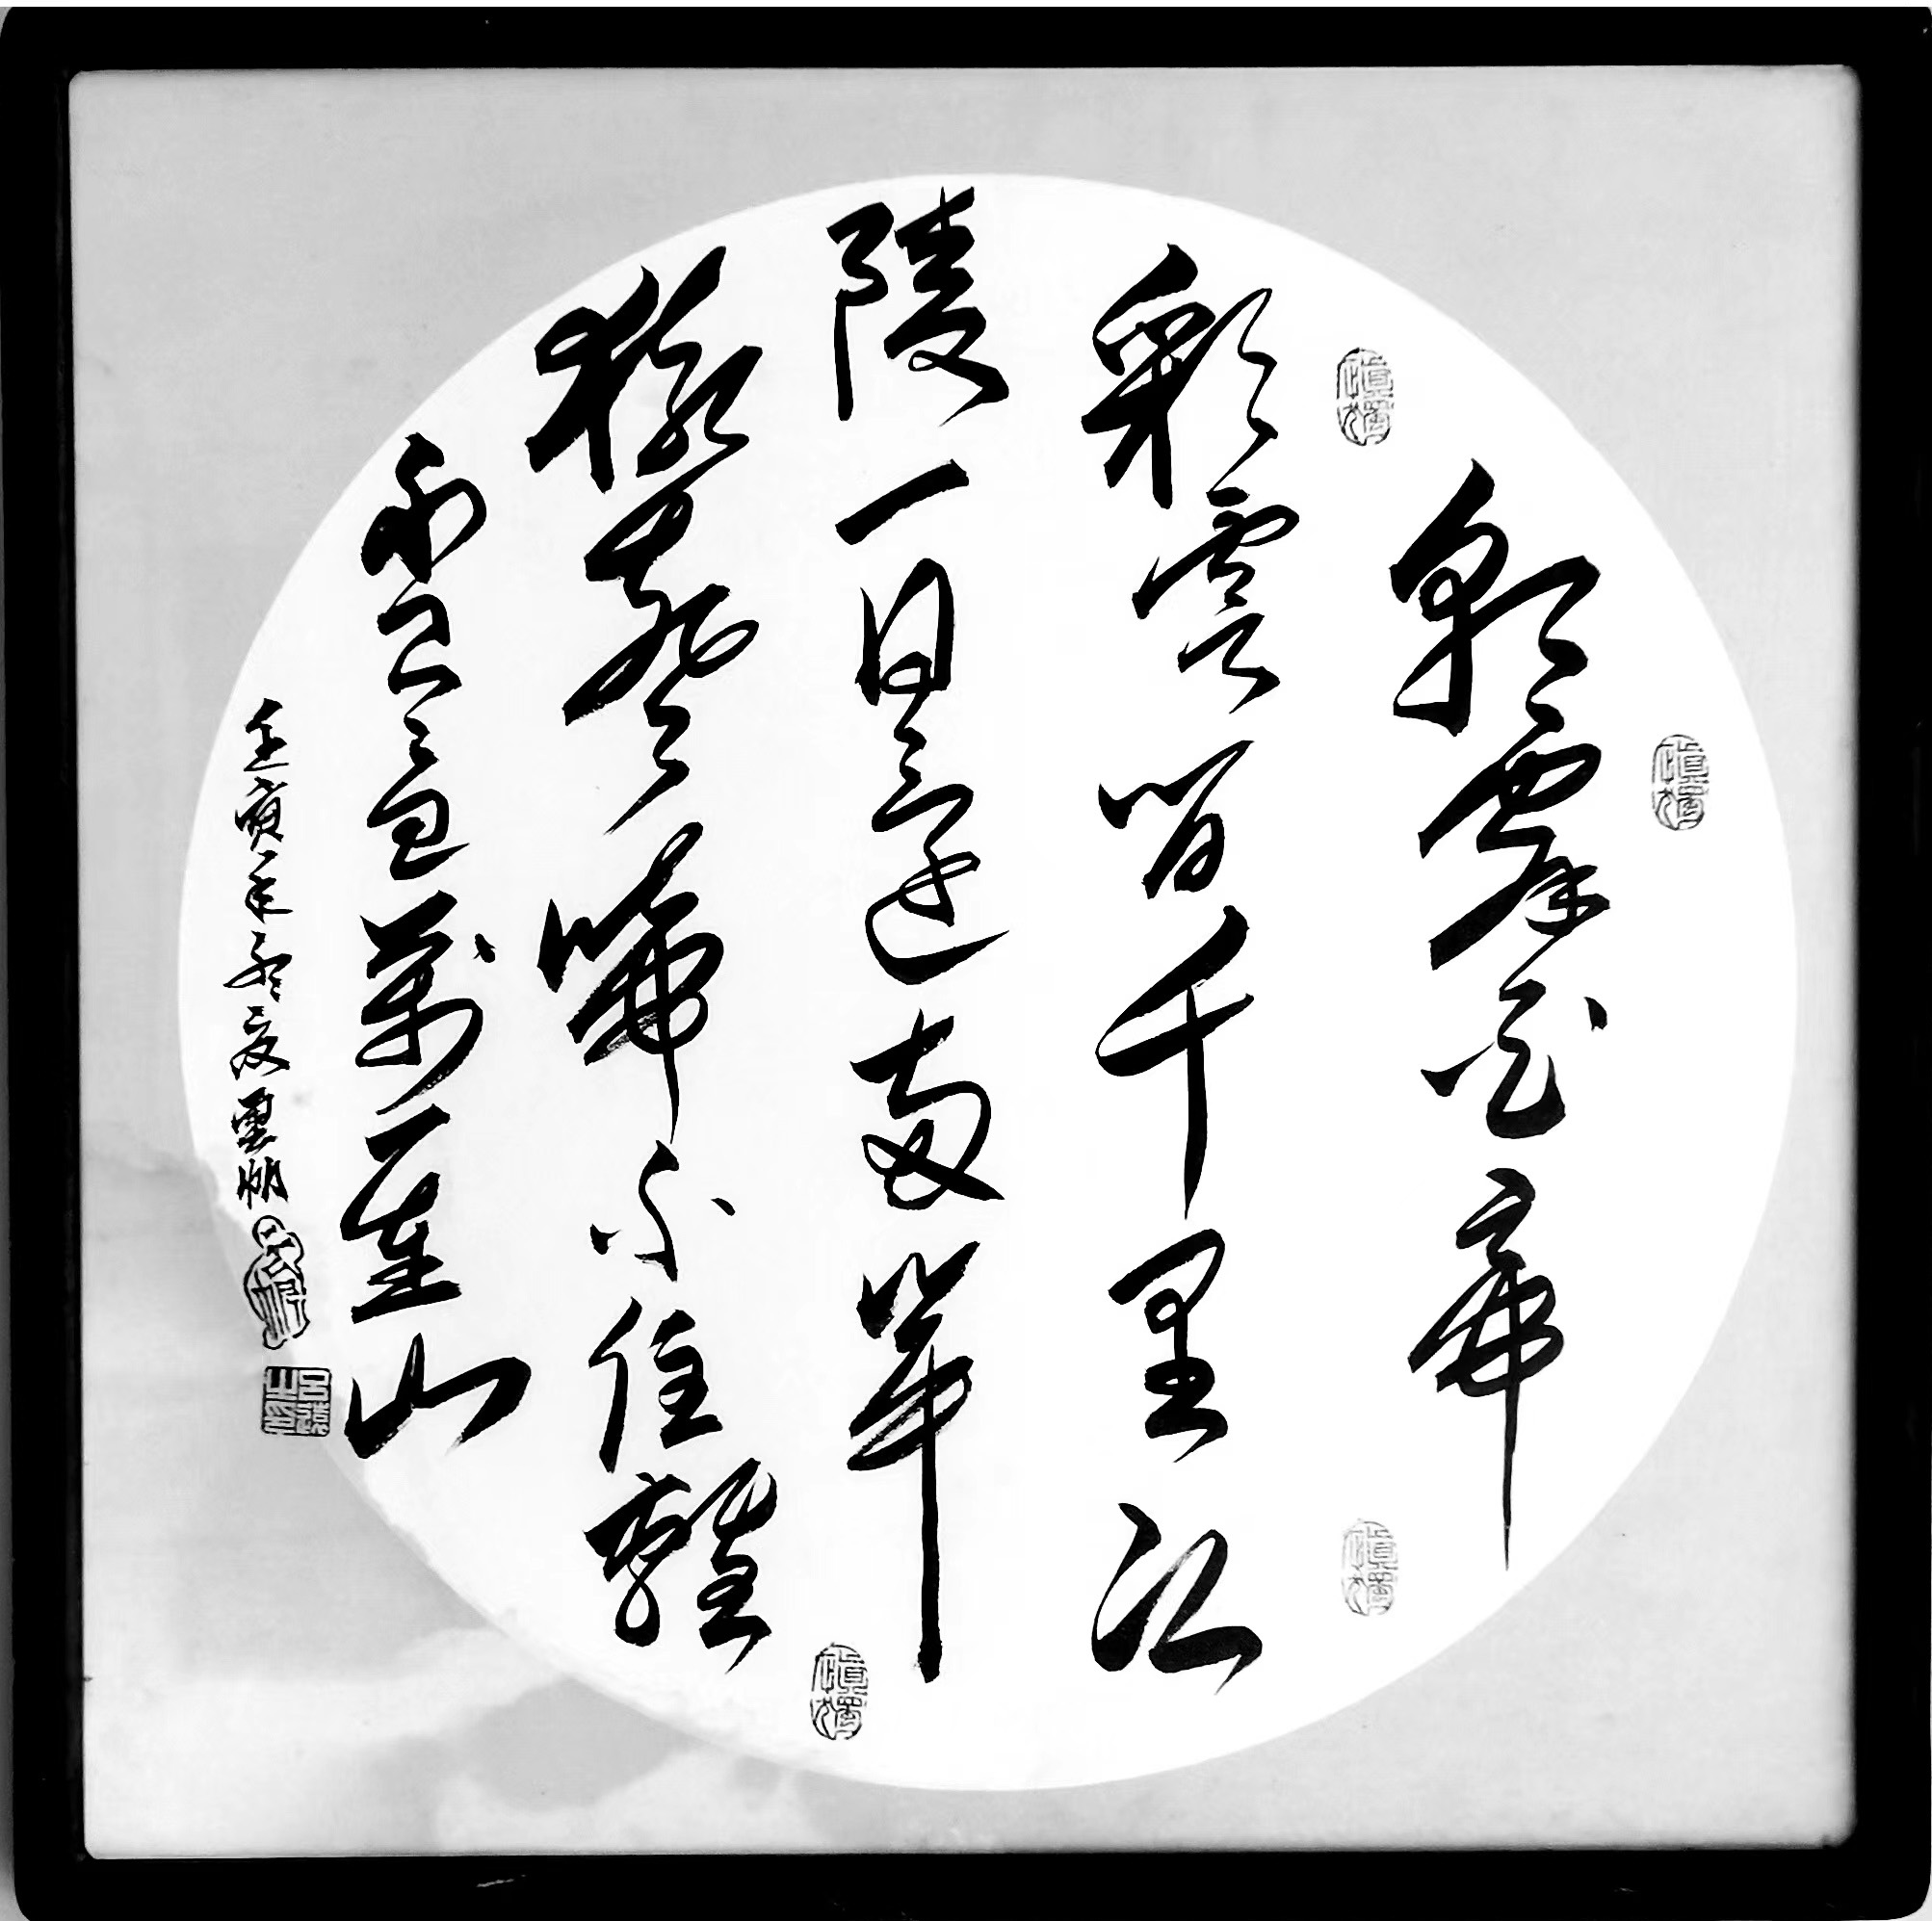 朝辭白帝
彩雲間千里江
陵一日還兩岸
猿聲啼不住輕
舟已過萬重山
壬寅年 雲帆